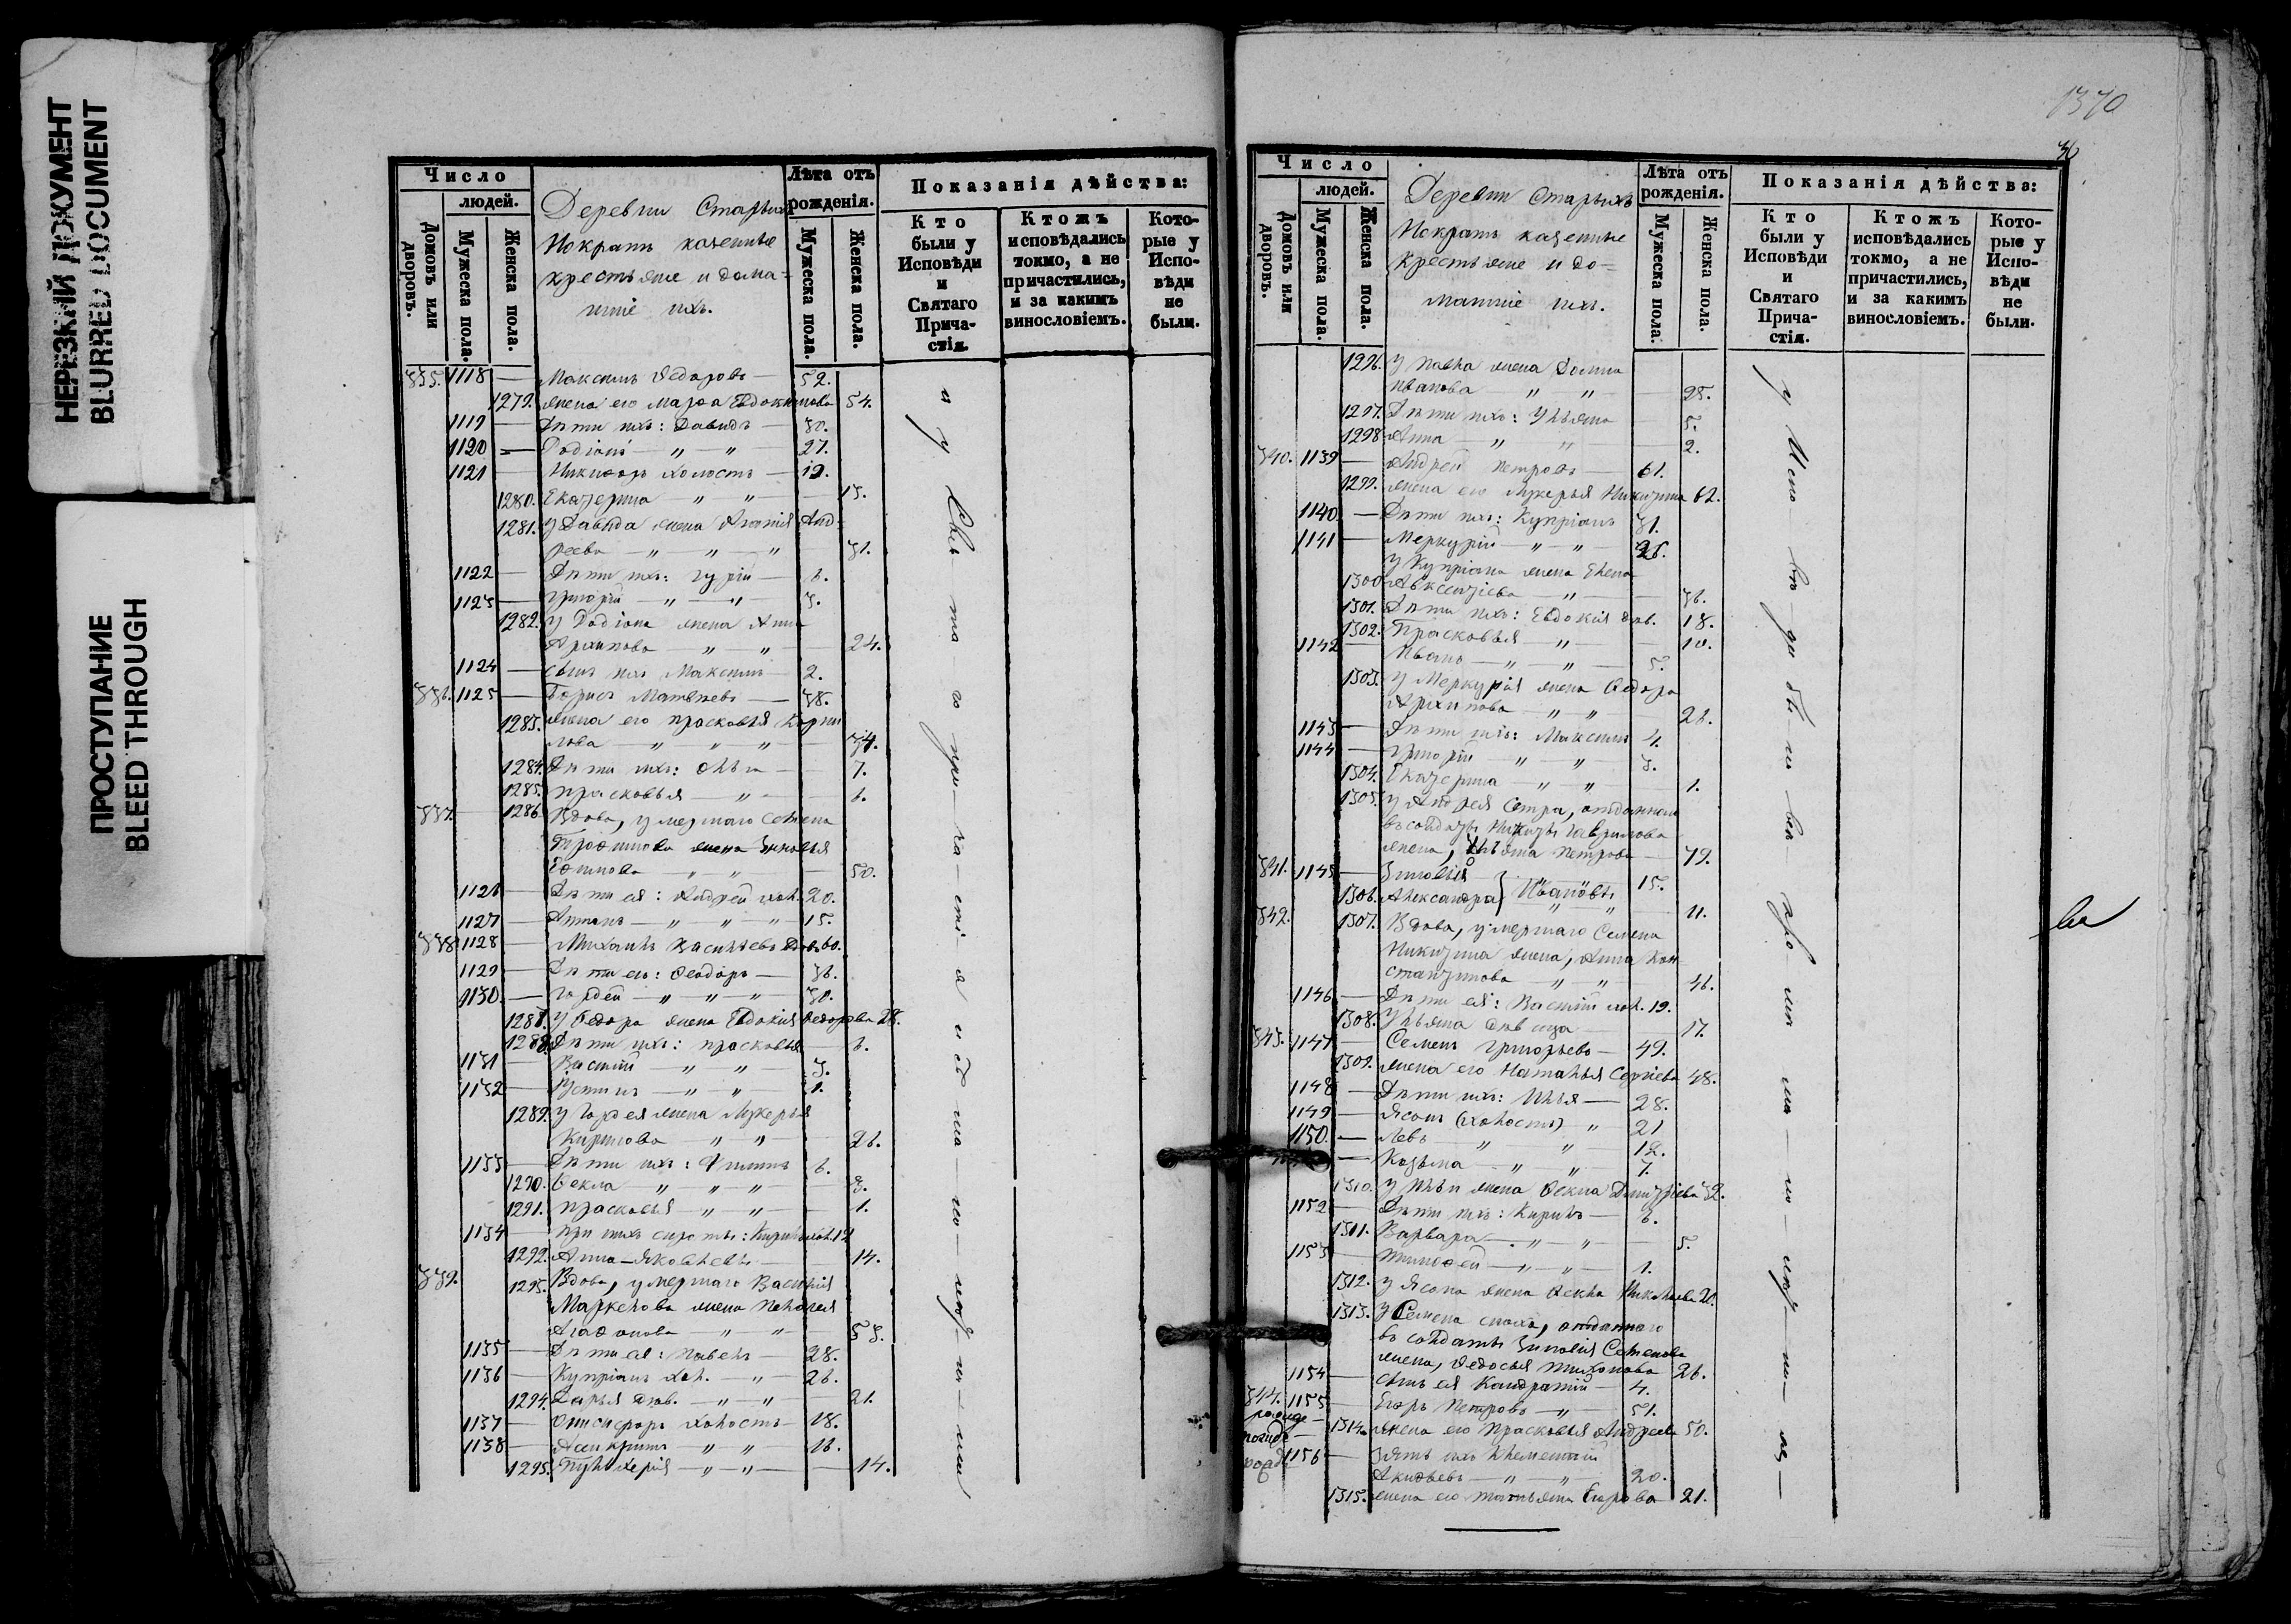 НЕРЕЗКИЙ ДОКУМЕНТ
BLURRED DOCUMENT
ПРОСТУПАНИЕ
BLEED THROUGH
Число
людей.
Домовъ или дворовъ.
Мужеска пола.
Женска пола.
Деревни Старыхъ
Мократь казенные
крестьяне и дома=
шніе ихъ.
Лѣта отъ рожденія.
Мужеска пола.
Женска пола.
Показанія дѣйства:
Кто были у Исповѣди и Святаго Причастія.
Ктожъ исповѣдались токмо, а не причастились, и за какимъ винословіемъ.
Которые у Исповѣди не были.
335. 1118 — Максимъ Ѳедоровъ — 52.
1279. жена его Марѳа Евдокимова 54.
1119 — Дѣти ихъ: Давидъ — 30.
1120 — Родіонъ — „ — „ 27.
1121 — Никифоръ холостъ — 19.
1280. Екатерина — „ „ — 13.
1281. у Давида жена Агаѳія Анд-
реева — „ — „ — „ — 31.
1122 — Дѣти ихъ: Гурій — 6.
1123 — Григорій — „ — „ 3.
1282. у Родіона жена Анна
Архипова — „ — „ — 24.
1124 — сынъ ихъ Максимъ — 2.
336. 1125 — Борисъ Матвѣевъ — 38.
1283. жена его Прасковья Кирил
лова — „ — „ — „ — 34.
1284. Дѣти ихъ: Ольга — 7.
1285. Прасковья — „ — 6.
337. 1286. Вдова, умершаго Семена
Трофимова жена Зиновья
Ефимова — „ — „ — 50.
1126 — Дѣти ея: Андрей хол. 20.
1127 — Антонъ — „ — „ — „ 15.
338. 1128 — Михаилъ Васильевъ вдовъ 60.
1129 — Дѣти его: Ѳеодоръ — 36.
1130. — Гордей — „ — „ — „ 30.
1287. у Ѳедора жена Евдокія Ѳедорова 28.
1288. Дѣти ихъ: Прасковья — 6.
1131 — Василій — „ — „ — 3.
1132 — Устинъ — „ — „ 1.
1289. у Гордея жена Лукерья
Кирилова „ — „ — 26.
1133 — Дѣти ихъ: Филиппъ 6.
1290. Ѳекла — „ — „ — „ — 3.
1291. Прасковья — „ — „ — 1.
1134 — при нихъ сироты: Кирилъ хол. 19
1292. Анна — Яковлевы — 14.
339. 1293. Вдова, умершаго Василія
Маркелова жена Пелагея
Агафонова — „ — „ — 53.
1135 — Дѣти ея: Павелъ — 28.
1136 — Купріанъ хол. — „ — 26.
1294. Дарья дѣв. — „ — „ 21.
1137 — Онисифоръ холостъ — 18.
1138 — Асинкритъ — „ — „ 16.
1295. Пульхерія — „ — „ — 14.
и у Свя — та — го при — ча — сті — я
1370
36
Число
людей.
Домовъ или дворовъ.
Мужеска пола.
Женска пола.
Деревни Старыхъ
Мократь казенные
крестьяне и до=
машніе ихъ.
Лѣта отъ рожденія.
Мужеска пола.
Женска пола.
Показанія дѣйства:
Кто были у Исповѣди и Святаго Причастія.
Ктожъ исповѣдались токмо, а не причастились, и за какимъ винословіемъ.
Которые у Исповѣди не были.
1296. у Павла жена Домна
Иванова „ „ — 25.
1297. Дѣти ихъ: Ульяна — 5.
1298 Анна — „ „ — 2.
340. 1139 — Андрей Петровъ — 61.
1299. жена его Лукерья Никитина 62.
1140. — Дѣти ихъ: Купріанъ 31.
1141 — Меркурій — „ — „ — 26.
у Купріана жена Елена
1300 Авксентіева — „ — 36.
1301. Дѣти ихъ: Евдокія дѣв. 18.
1302. Прасковья „ — 10.
1142 — Иванъ — „ — „ — 5.
1303. у Меркурія жена Ѳедора
Архипова „ — „ — 26.
1143 — Дѣти ихъ: Максимъ 4.
1144 — Григорій — „ — „ — 3.
1304. Екатерина — „ — „ 1.
1305. у Андрея сестра, отданнаго
въ солдаты Никиты Гаврилова
жена, Ульяна Петрова — 79.
341. 1145 — Зиновій 15.
1306. Александра } Ивановы 11.
342. 1307. Вдова, умершаго Семена
Никитина жена, Анна Кон
стантинова — „ — „ — 46.
1146 — Дѣти ея: Василій хол. 19.
1308. Ульяна дѣвица — 17.
343. 1147 — Семенъ Григорьевъ — 49.
1309. жена его Наталья Сергіева 48.
1148 — Дѣти ихъ: Илья — 28.
1149 — Ясонъ (холостъ) „ 21
1150. — Левъ „ „ — 12.
— Козьма — „ — „ — 7.
1310. у Ильи жена Ѳекла Дмитріева 32.
1152 — Дѣти ихъ: Кирилъ — 6.
1311. Варвара — „ — „ — 5.
1153 — Тимофей — „ — „ — 1.
1312. у Ясона жена Ѳекла Николаева 20.
1313. у Семена сноха, отданнаго
въ солдаты Зиновія Семенова
жена, Ѳедосья Тихонова 26.
1154 — сынъ ея Кондратій — 4.
344. 1155 — Егоръ Петровъ — „ — 51.
1314. жена его Прасковья Андреева 50.
1156 — зять ихъ Климентій
Акиловъ — „ — „ — 20.
1315. жена его Татьяна Егорова 21.
у Испо — вѣ — ди бы — ли